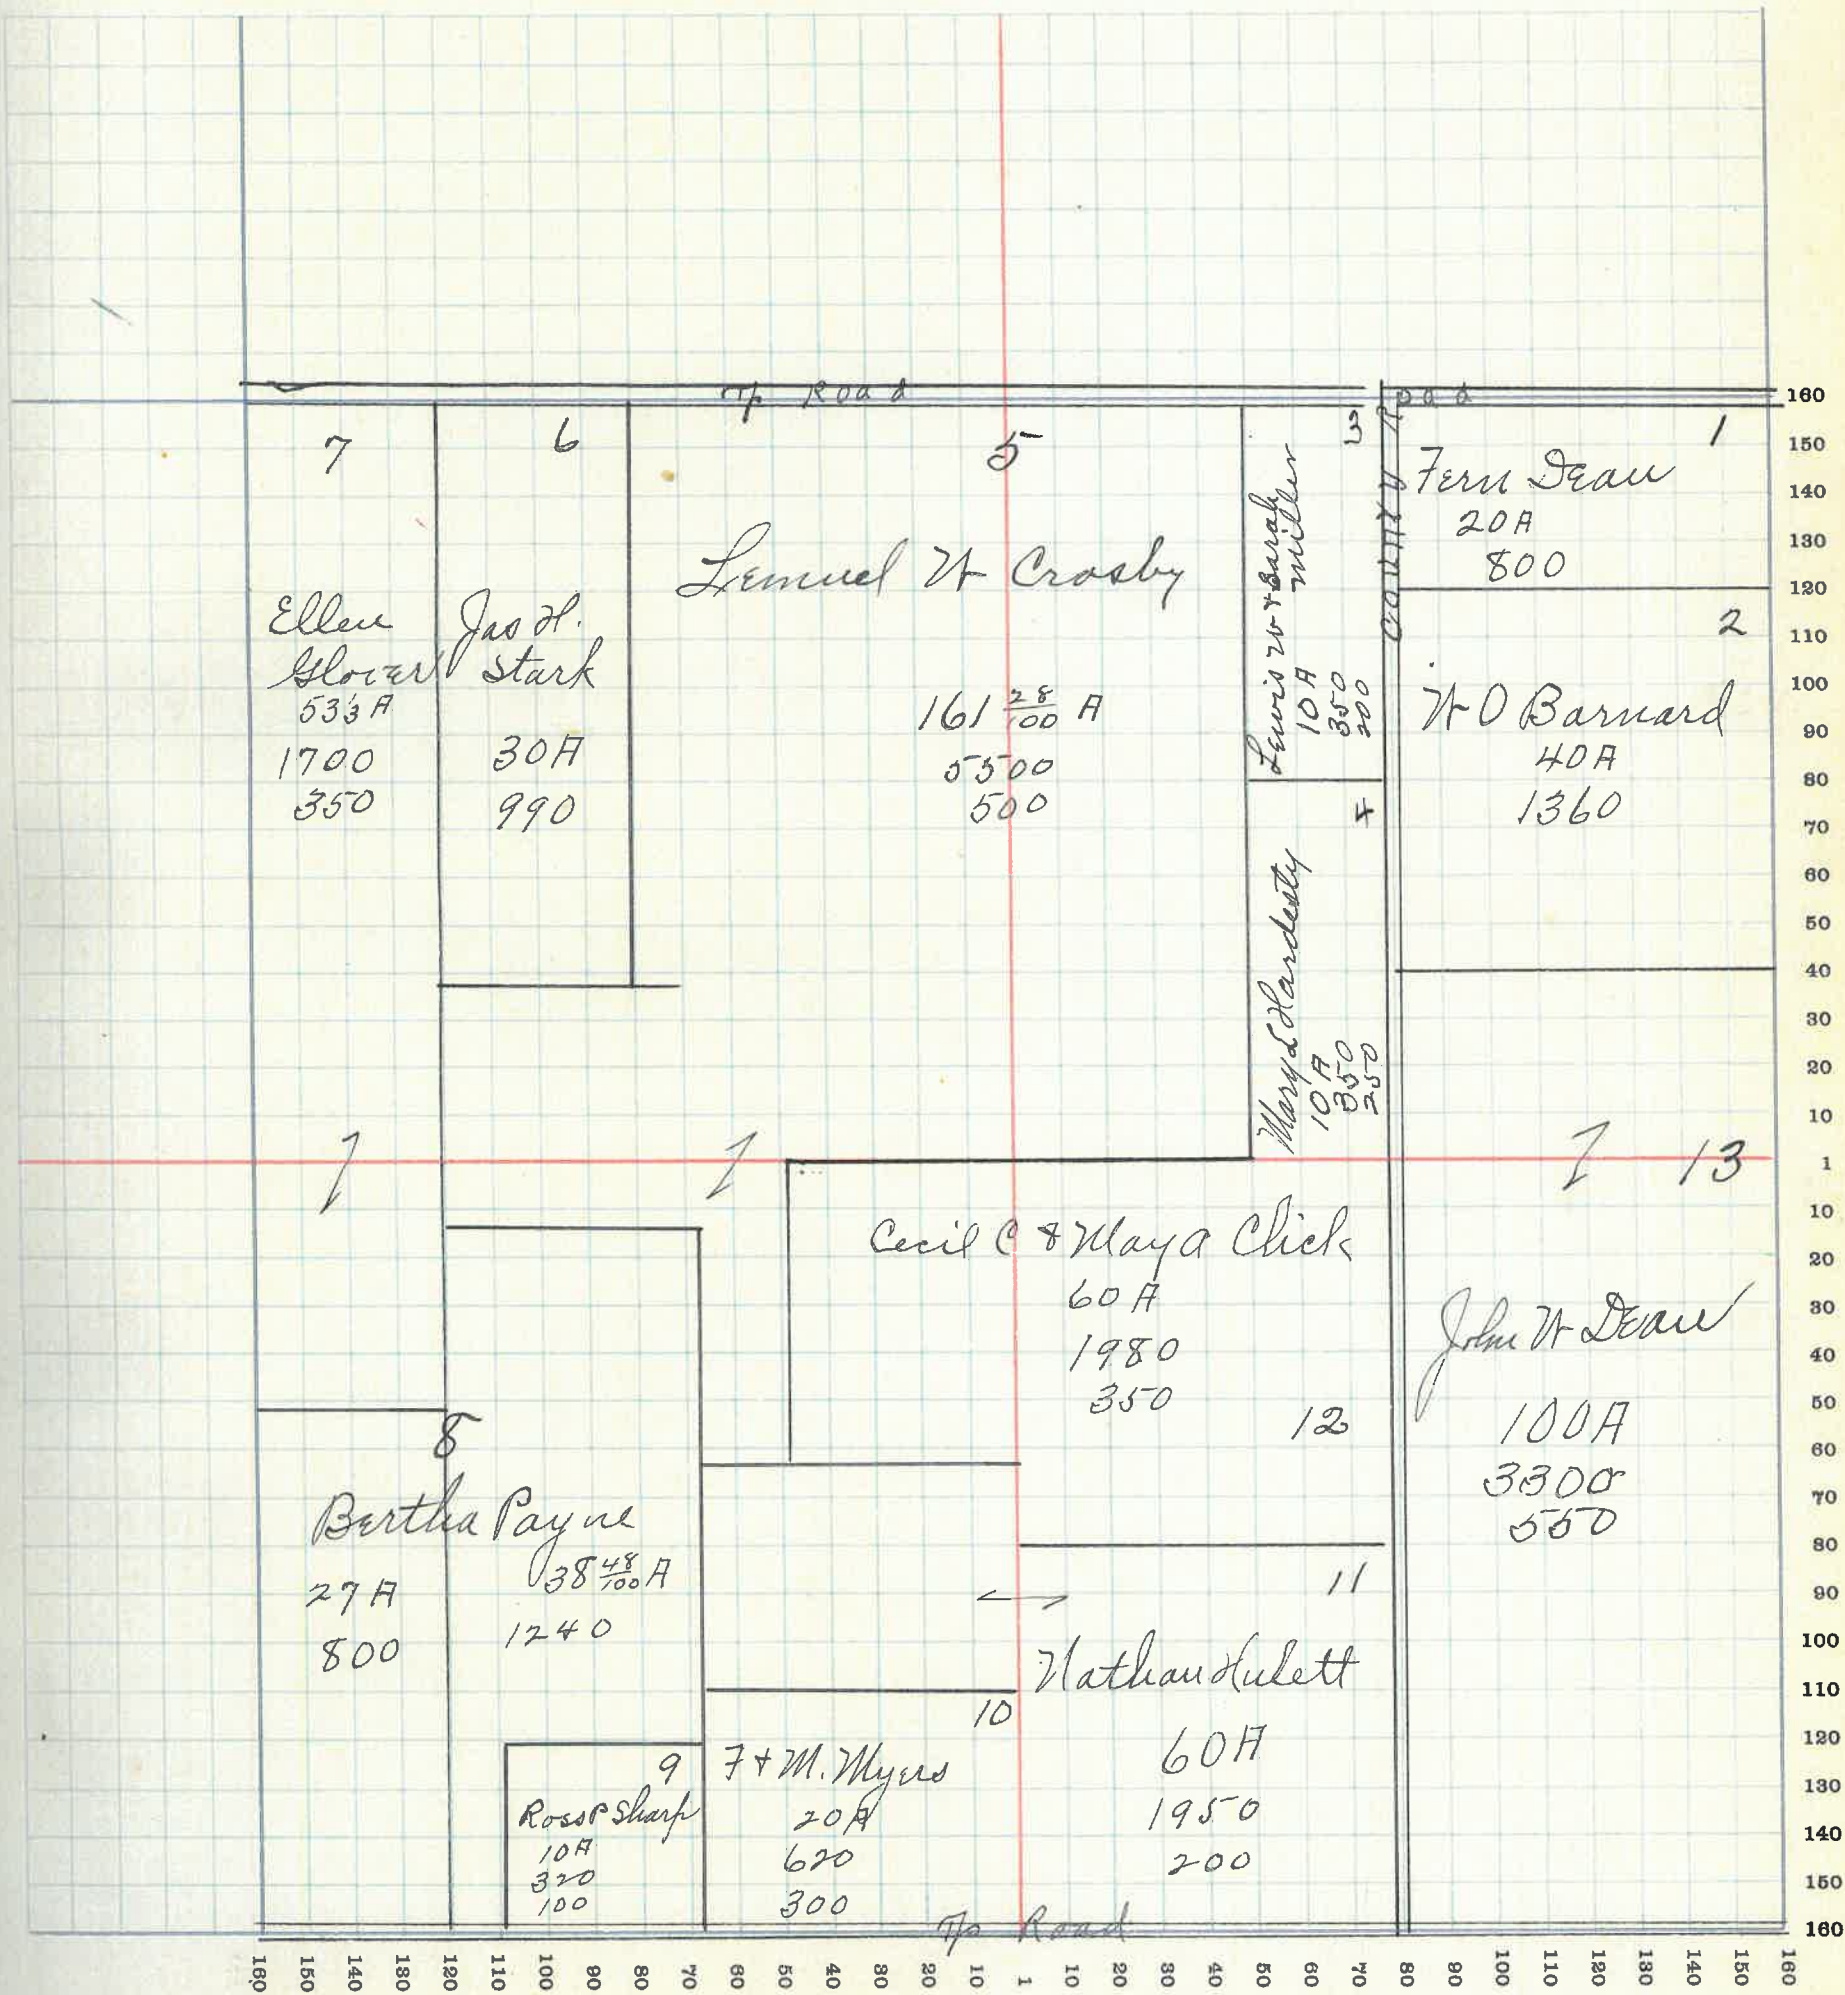 Tp Road
7
Ellen
Glover
53⅓ A
1700
350
6
Jas H.
Stark
30A
990
5
Lemuel W Crosby
161 28/100 A
5500
500
3
Lewis W & Sarah
Miller
10 A
350
200
4
Mary L Hardesty
10 A
350
250
County Road
1
Fern Dean
20A
800
2
W O Barnard
40A
1360
13
John W Dean
100A
3300
550
Cecil C & May A Click
60 A
1980
350
12
8
Bertha Payne
27 A
800
38 48/100 A
1240
11
Nathan Hulett
60A
1950
200
10
F & M. Myers
20A
620
300
9
Ross P Sharp
10A
320
100
Tp Road
160
150
140
130
120
110
100
90
80
70
60
50
40
30
20
10
1
10
20
30
40
50
60
70
80
90
100
110
120
130
140
150
160
160 150 140 130 120 110 100 90 80 70 60 50 40 30 20 10 1 10 20 30 40 50 60 70 80 90 100 110 120 130 140 150 160